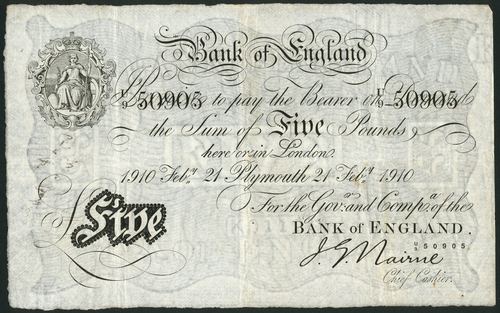 Bank of England
I Promise to pay the Bearer on Demand
U/9 50905 U/9 50905
the Sum of Five Pounds
here or in London
1910 Feby. 21 Plymouth 21 Feby. 1910
For the Govr. and Compa. of the
BANK OF ENGLAND.
£Five
U/9 50905
J. G. Nairne
Chief Cashier.